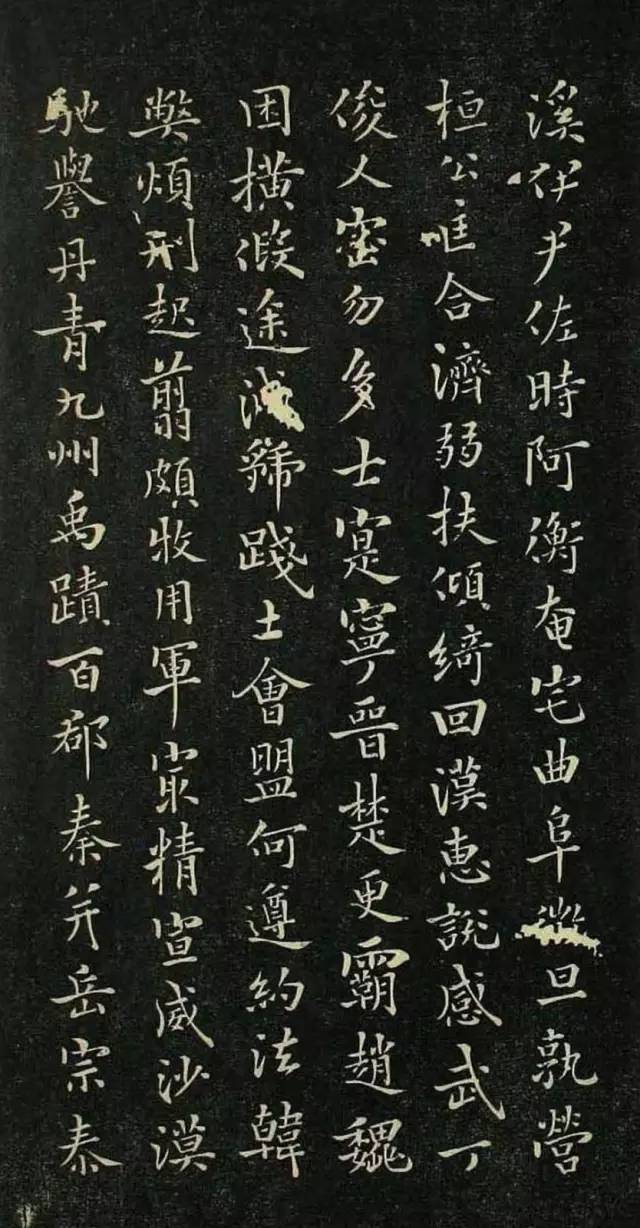 溪伊尹佐時阿衡奄宅曲阜微旦孰營
桓公匡合濟弱扶傾綺回漢惠說感武丁
俊乂密勿多士寔寧晉楚更霸趙魏
困橫假途滅虢踐土會盟何遵約法韓
弊煩刑起翦頗牧用軍最精宣威沙漠
馳譽丹青九州禹蹟百郡秦并岳宗泰